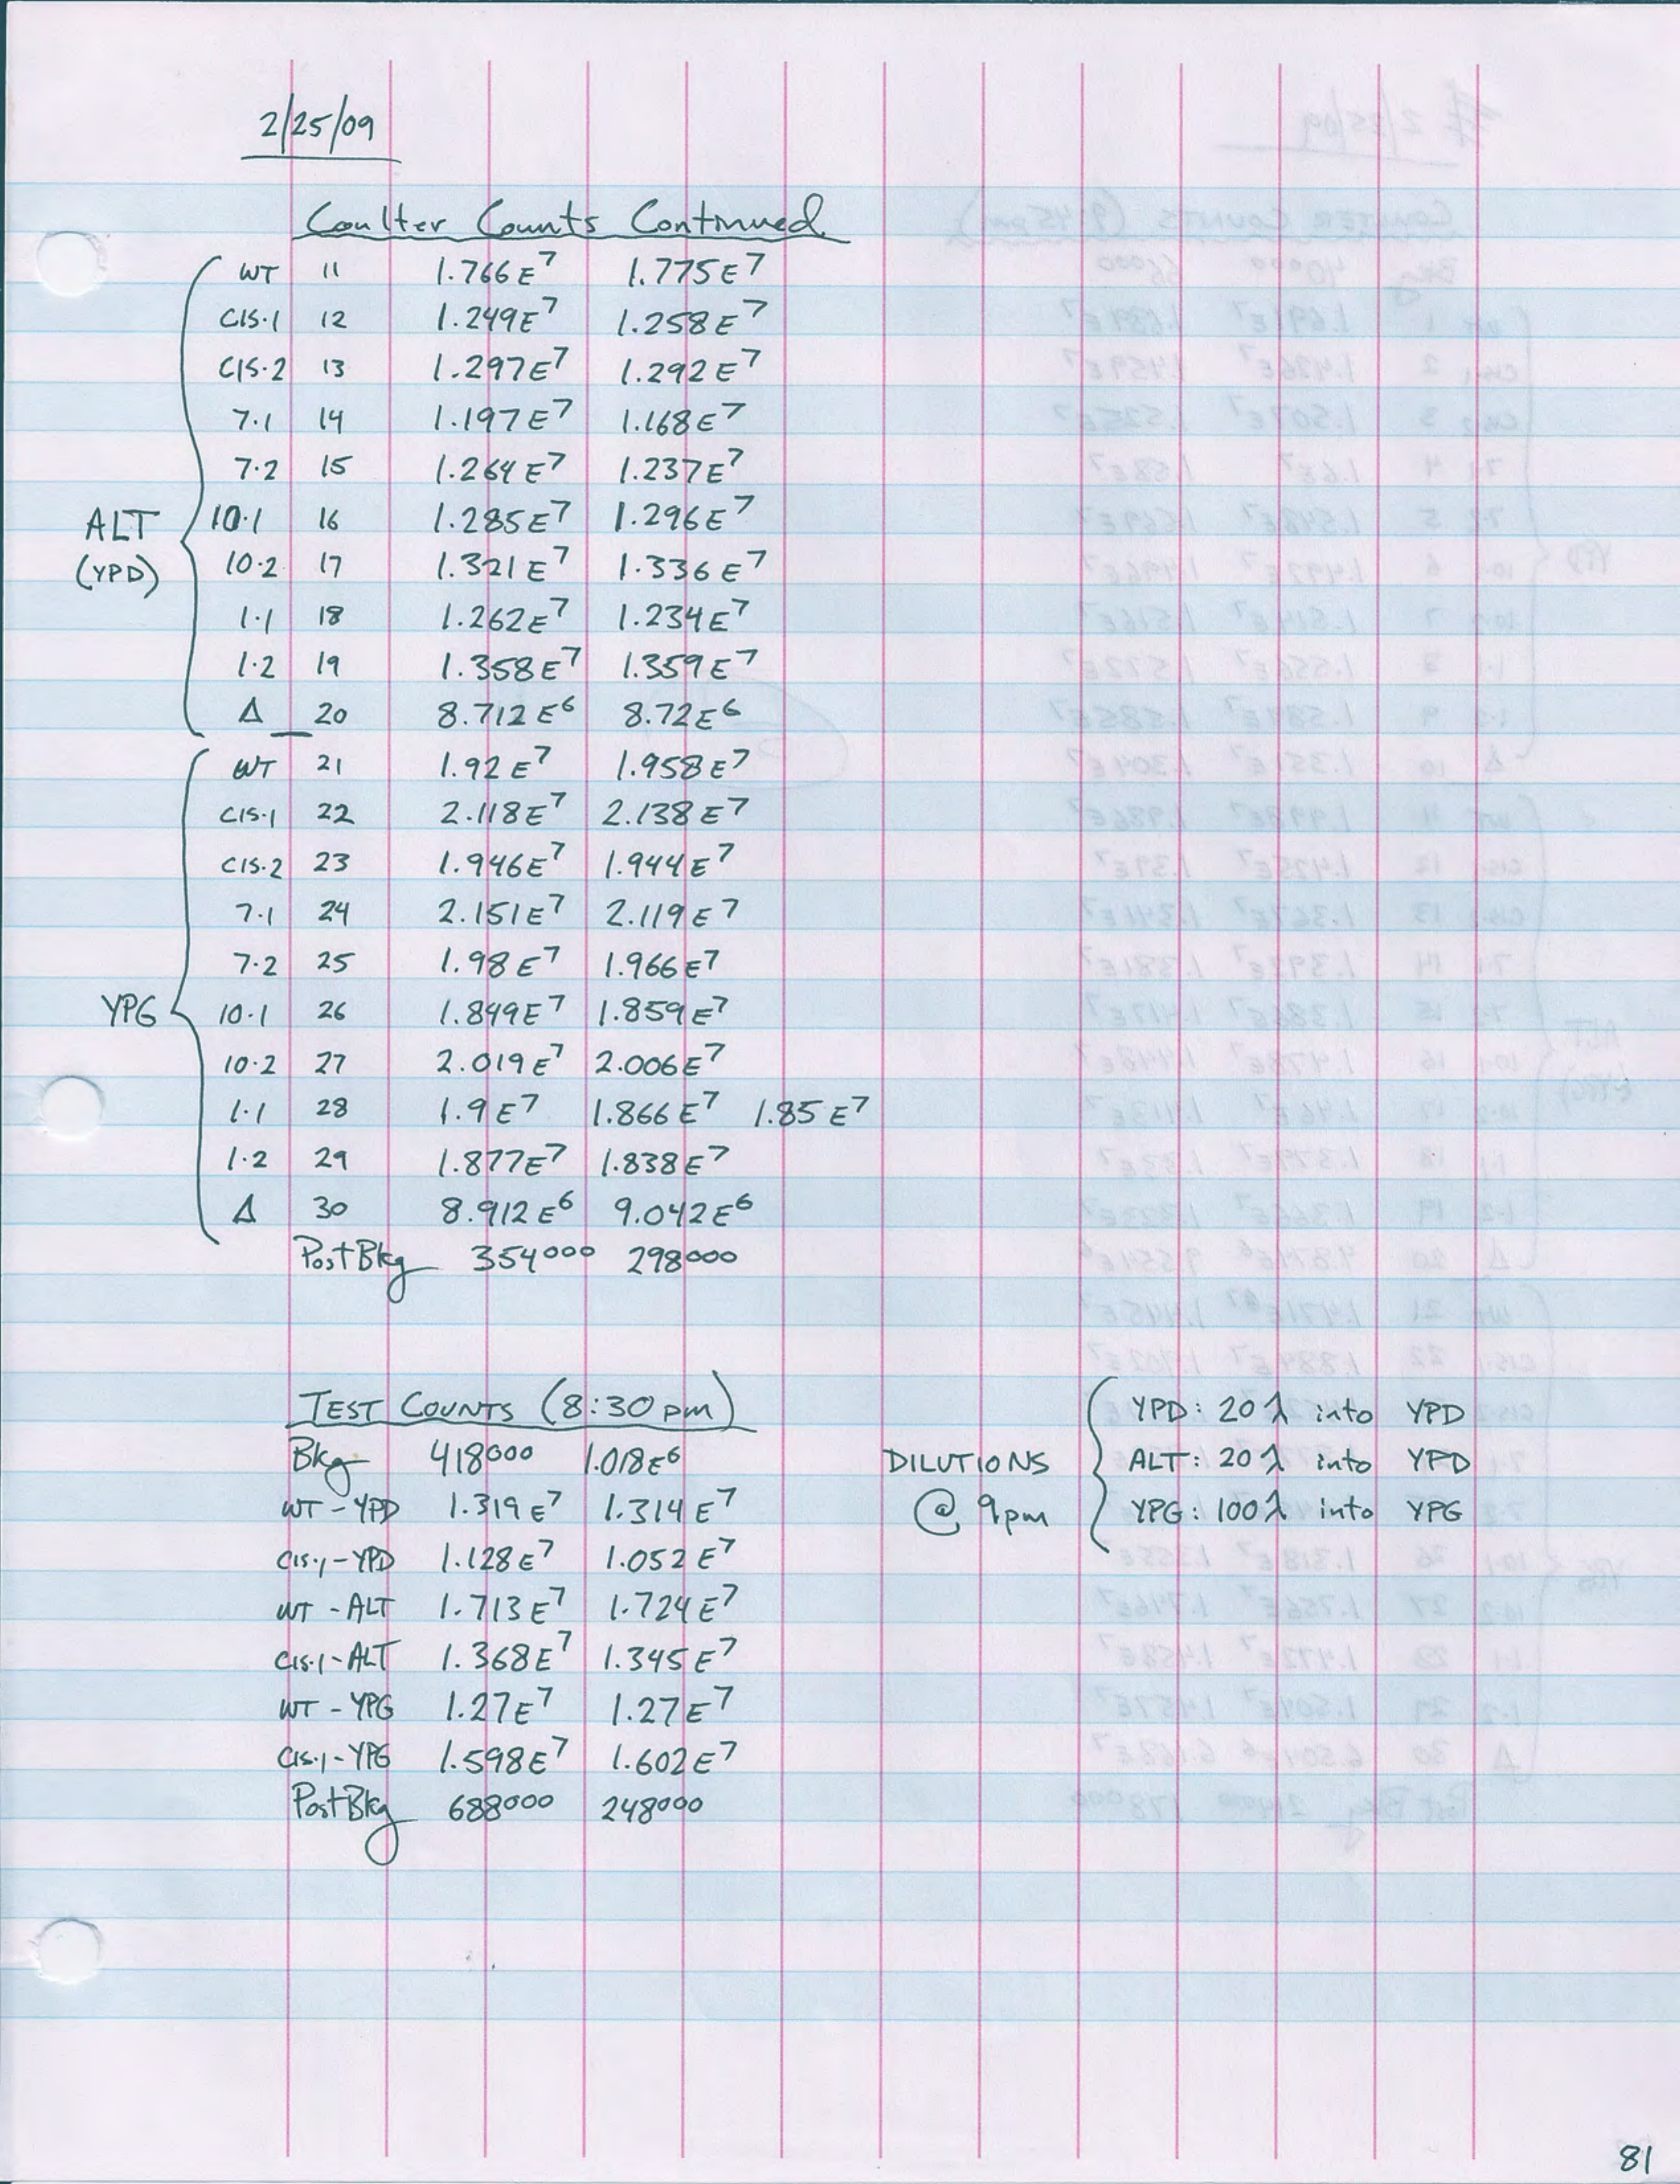 2/25/09
Coulter Counts Continued
WT 11 1.766E⁷ 1.775E⁷
CIS·1 12 1.249E⁷ 1.258E⁷
CIS·2 13 1.297E⁷ 1.292E⁷
7·1 14 1.197E⁷ 1.168E⁷
7·2 15 1.264E⁷ 1.237E⁷
ALT (YPD)
10·1 16 1.285E⁷ 1.296E⁷
10·2 17 1.321E⁷ 1.336E⁷
1·1 18 1.262E⁷ 1.234E⁷
1·2 19 1.358E⁷ 1.359E⁷
Δ 20 8.712E⁶ 8.72E⁶
WT 21 1.92E⁷ 1.958E⁷
CIS·1 22 2.118E⁷ 2.138E⁷
CIS·2 23 1.946E⁷ 1.944E⁷
7·1 24 2.151E⁷ 2.119E⁷
7·2 25 1.98E⁷ 1.966E⁷
YPG 10·1 26 1.849E⁷ 1.859E⁷
10·2 27 2.019E⁷ 2.006E⁷
1·1 28 1.9E⁷ 1.866E⁷ 1.85E⁷
1·2 29 1.877E⁷ 1.838E⁷
Δ 30 8.912E⁶ 9.042E⁶
Post Bkg 354000 298000
TEST COUNTS (8:30pm)
Bkg 418000 1.018E⁶
WT-YPD 1.319E⁷ 1.314E⁷
CIS·1-YPD 1.128E⁷ 1.052E⁷
WT-ALT 1.713E⁷ 1.724E⁷
CIS·1-ALT 1.368E⁷ 1.345E⁷
WT-YPG 1.27E⁷ 1.27E⁷
CIS·1-YPG 1.598E⁷ 1.602E⁷
Post Bkg 688000 248000
DILUTIONS @ 9pm
YPD: 20λ into YPD
ALT: 20λ into YPD
YPG: 100λ into YPG
81